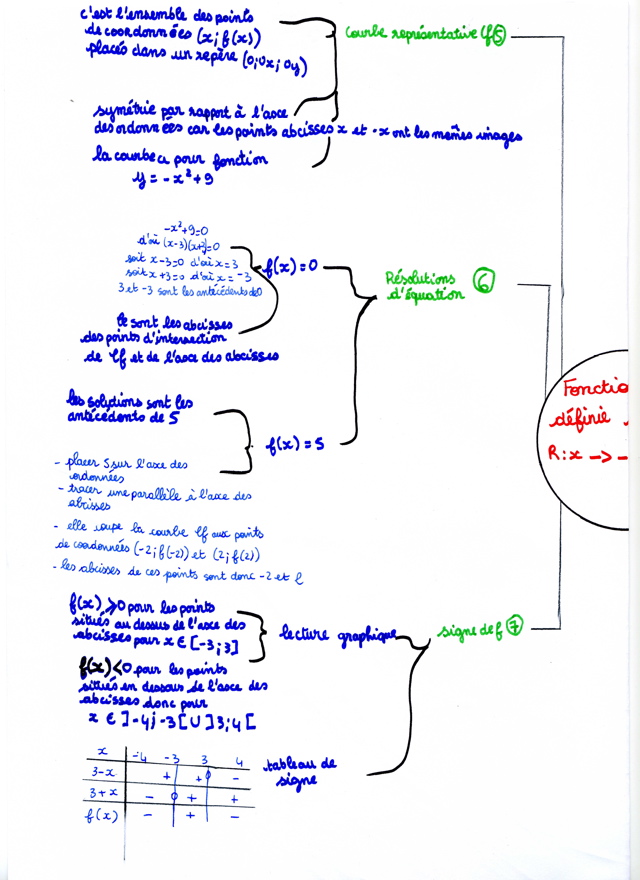 c'est l'ensemble des points
de coordonnées (x; f(x))
placés dans un repère (O; Ox; Oy)
courbe représentative Cf 5
symétrie par rapport à l'axe
des ordonnées car les points abcisses x et -x ont les mêmes images
la courbe a pour fonction
y = -x² + 9
-x²+9=0
d'où (x-3)(x+3)=0
soit x-3=0 d'où x=3
soit x+3=0 d'où x=-3
3 et -3 sont les antécédents de 0
f(x)=0
Résolutions
d'équation 6
Ce sont les abcisses
des points d'intersection
de Cf et de l'axe des abcisses
les solutions sont les
antécédents de 5
f(x)=5
- placer 5 sur l'axe des
ordonnées
- tracer une parallèle à l'axe des
abcisses
- elle coupe la courbe Cf aux points
de coordonnées (-2; f(-2)) et (2; f(2))
- les abcisses de ces points sont donc -2 et 2
Fonctio
définie
R: x -> -
f(x) ⩾ 0 pour les points
situés au dessus de l'axe des
abcisses pour x ∈ [-3; 3]
lecture graphique
signe de f 7
f(x)<0 pour les points
situés en dessous de l'axe des
abcisses donc pour
x ∈ ]-4; -3[ U ]3; 4[
tableau de
signe
x -4 -3 3 4
3-x + + 0 -
3+x - 0 + +
f(x) - + -